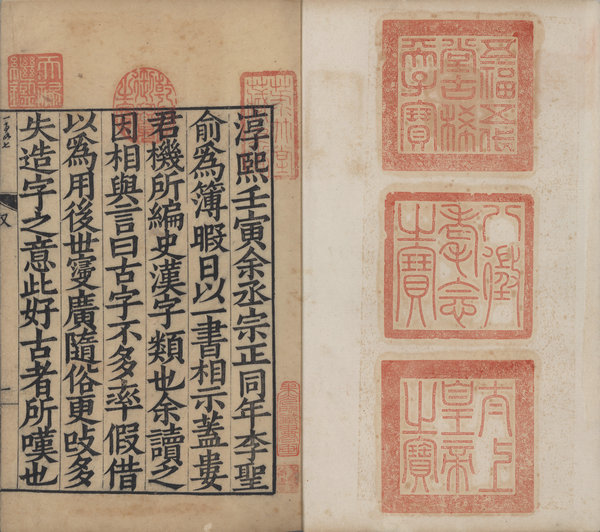 五福五代
堂古稀
天子寶
八徵
耄念
之寶
太上
皇帝
之寶
淳熙壬寅余丞宗正同年李聖
俞為簿暇日以一書相示蓋婁
君機所編史漢字類也余讀之
因相與言曰古字不多率假借
以為用後世寖廣隨俗更攺多
失造字之意此好古者所嘆也
乾隆御覽之寶
天祿繼鑑
又
一